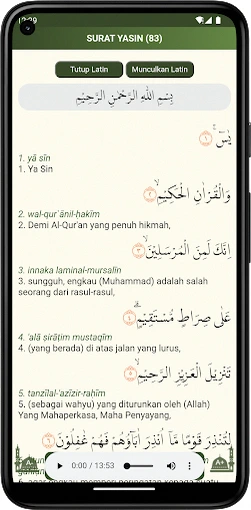 12:29
SURAT YASIN (83)
Tutup Latin
Munculkan Latin
بِسْمِ اللّٰهِ الرَّحْمٰنِ الرَّحِيْمِ
يٰسۤ ۚ ١
1. yā sīn
1. Ya Sin
وَالْقُرْاٰنِ الْحَكِيْمِۙ ٢
2. wal-qur`ānil-ḥakīm
2. Demi Al-Qur'an yang penuh hikmah,
اِنَّكَ لَمِنَ الْمُرْسَلِيْنَۙ ٣
3. innaka laminal-mursalīn
3. sungguh, engkau (Muhammad) adalah salah
seorang dari rasul-rasul,
عَلٰى صِرَاطٍ مُّسْتَقِيْمٍۗ ٤
4. 'alā ṣirāṭim mustaqīm
4. (yang berada) di atas jalan yang lurus,
تَنْزِيْلَ الْعَزِيْزِ الرَّحِيْمِۙ ٥
5. tanzīlal-'azīzir-raḥīm
5. (sebagai wahyu) yang diturunkan oleh (Allah)
Yang Mahaperkasa, Maha Penyayang,
لِتُنْذِرَ قَوْمًا مَّآ اُنْذِرَ اٰبَاۤؤُهُمْ فَهُمْ غٰفِلُوْنَ ٦
0:00 / 13:53